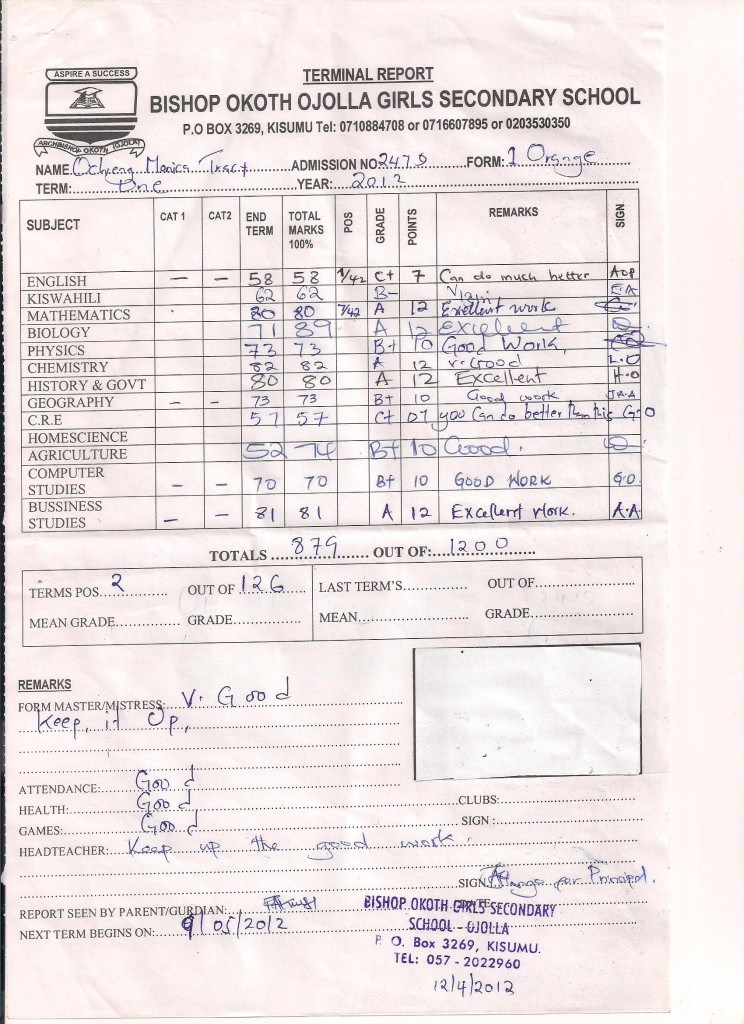 ASPIRE A SUCCESS
ARCHBISHOP OKOTH (OJOLLA)
TERMINAL REPORT
BISHOP OKOTH OJOLLA GIRLS SECONDARY SCHOOL
P.O BOX 3269, KISUMU Tel: 0710884708 or 0716607895 or 0203530350
NAME Ochieng Monica Tracy ADMISSION NO 2478 FORM: 1 Orange
TERM: One YEAR: 2012
SUBJECT CAT 1 CAT2 END TERM TOTAL MARKS 100% POS GRADE POINTS REMARKS SIGN
ENGLISH — — 58 58 1/42 C+ 7 Can do much better AOP
KISWAHILI 62 62 B- Vizuri E.A
MATHEMATICS 80 80 7/42 A 12 Excellent work
BIOLOGY 71 89 A 12 Excellent
PHYSICS 73 73 B+ 10 Good Work,
CHEMISTRY 82 82 A 12 v. Good L.O
HISTORY & GOVT 80 80 A 12 Excellent H.O
GEOGRAPHY – – 73 73 B+ 10 Good work J.A.A
C.R.E 57 57 C+ 07 you Can do better than this G.O
HOMESCIENCE
AGRICULTURE 52 74 B+ 10 Good.
COMPUTER STUDIES – – 70 70 B+ 10 GOOD WORK G.O.
BUSSINESS STUDIES – – 81 81 A 12 Excellent Work. A.A.
TOTALS 879 OUT OF: 1200
TERMS POS. 2 OUT OF 126 LAST TERM'S OUT OF
MEAN GRADE GRADE MEAN GRADE
REMARKS
FORM MASTER/MISTRESS: V. Good
Keep it Up,
ATTENDANCE: Good
HEALTH: Good CLUBS:
GAMES: Good SIGN :
HEADTEACHER: Keep up the good work.
SIGN for Principal.
REPORT SEEN BY PARENT/GURDIAN:
NEXT TERM BEGINS ON: 9/05/2012
BISHOP OKOTH GIRLS SECONDARY
SCHOOL - OJOLLA
P. O. Box 3269, KISUMU.
TEL: 057 - 2022960
12/4/2012